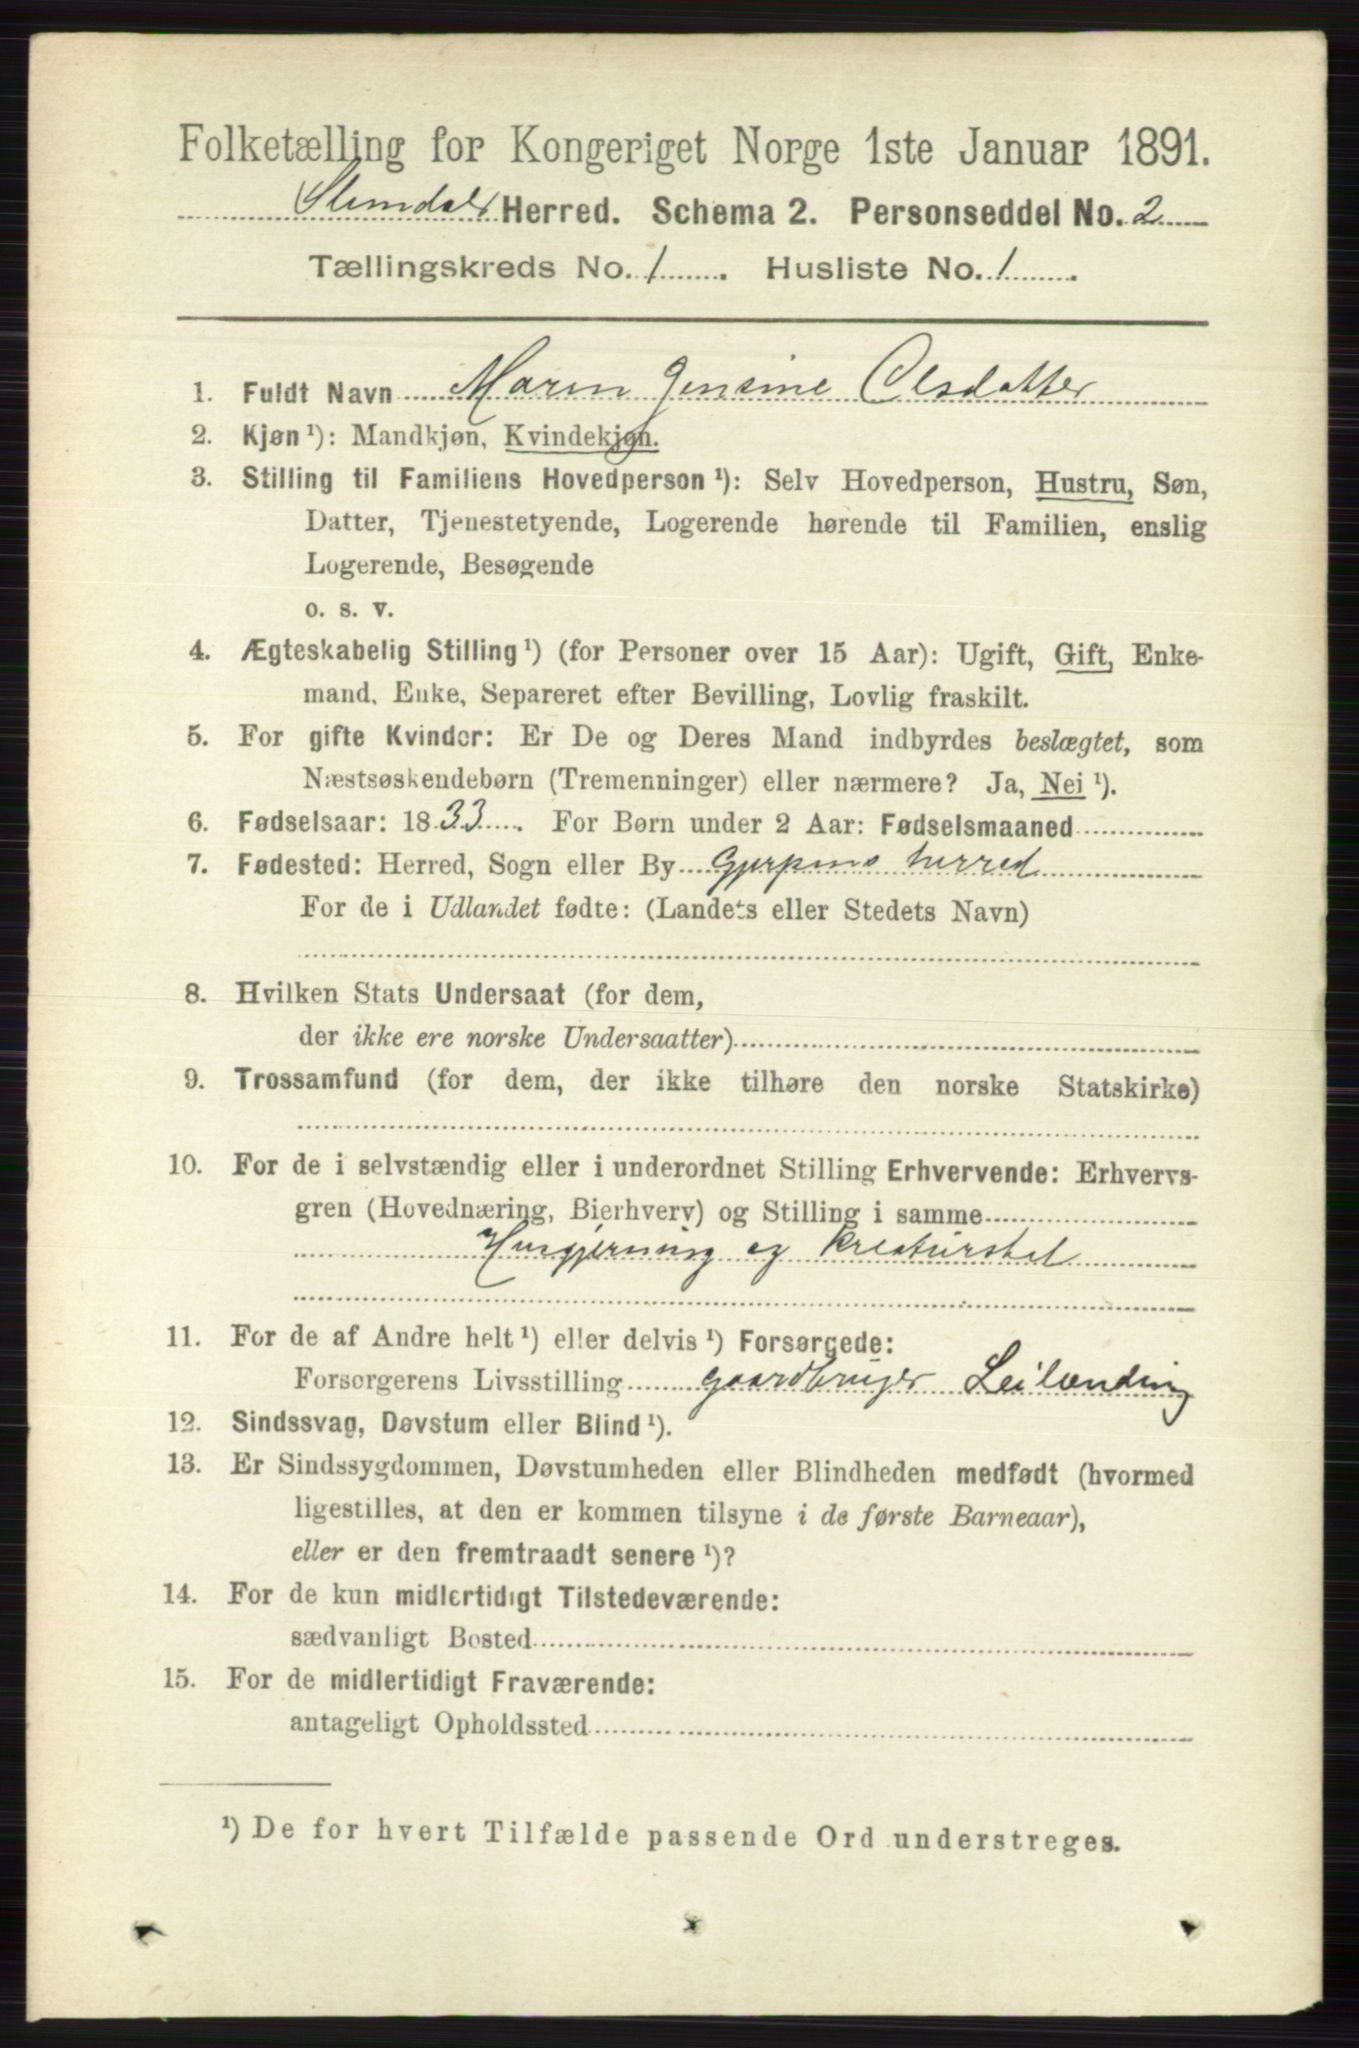 Folketælling for Kongeriget Norge 1ste Januar 1891.
Slemdal Herred. Schema 2. Personseddel No. 2
Tællingskreds No. 1. Husliste No. 1.
1. Fuldt Navn Maren Jensine Olsdatter
2. Kjøn ¹): Mandkjøn, Kvindekjøn.
3. Stilling til Familiens Hovedperson ¹): Selv Hovedperson, Hustru, Søn,
Datter, Tjenestetyende, Logerende hørende til Familien, enslig
Logerende, Besøgende
o. s. v.
4. Ægteskabelig Stilling ¹) (for Personer over 15 Aar): Ugift, Gift, Enke-
mand, Enke, Separeret efter Bevilling, Lovlig fraskilt.
5. For gifte Kvinder: Er De og Deres Mand indbyrdes beslægtet, som
Næstsøskendebørn (Tremenninger) eller nærmere? Ja, Nei ¹).
6. Fødselsaar: 1833. For Børn under 2 Aar: Fødselsmaaned
7. Fødested: Herred, Sogn eller By Gjerpens herred
For de i Udlandet fødte: (Landets eller Stedets Navn)
8. Hvilken Stats Undersaat (for dem,
der ikke ere norske Undersaatter)
9. Trossamfund (for dem, der ikke tilhøre den norske Statskirke)
10. For de i selvstændig eller i underordnet Stilling Erhvervende: Erhvervs-
gren (Hovednæring, Bierhverv) og Stilling i samme
Husgjerning og Kreaturstel
11. For de af Andre helt ¹) eller delvis ¹) Forsørgede:
Forsørgerens Livsstilling gaardbruger Leilænding
12. Sindssvag, Døvstum eller Blind ¹).
13. Er Sindssygdommen, Døvstumheden eller Blindheden medfødt (hvormed
ligestilles, at den er kommen tilsyne i de første Barneaar),
eller er den fremtraadt senere ¹)?
14. For de kun midlertidigt Tilstedeværende:
sædvanligt Bosted
15. For de midlertidigt Fraværende:
antageligt Opholdssted
¹) De for hvert Tilfælde passende Ord understreges.